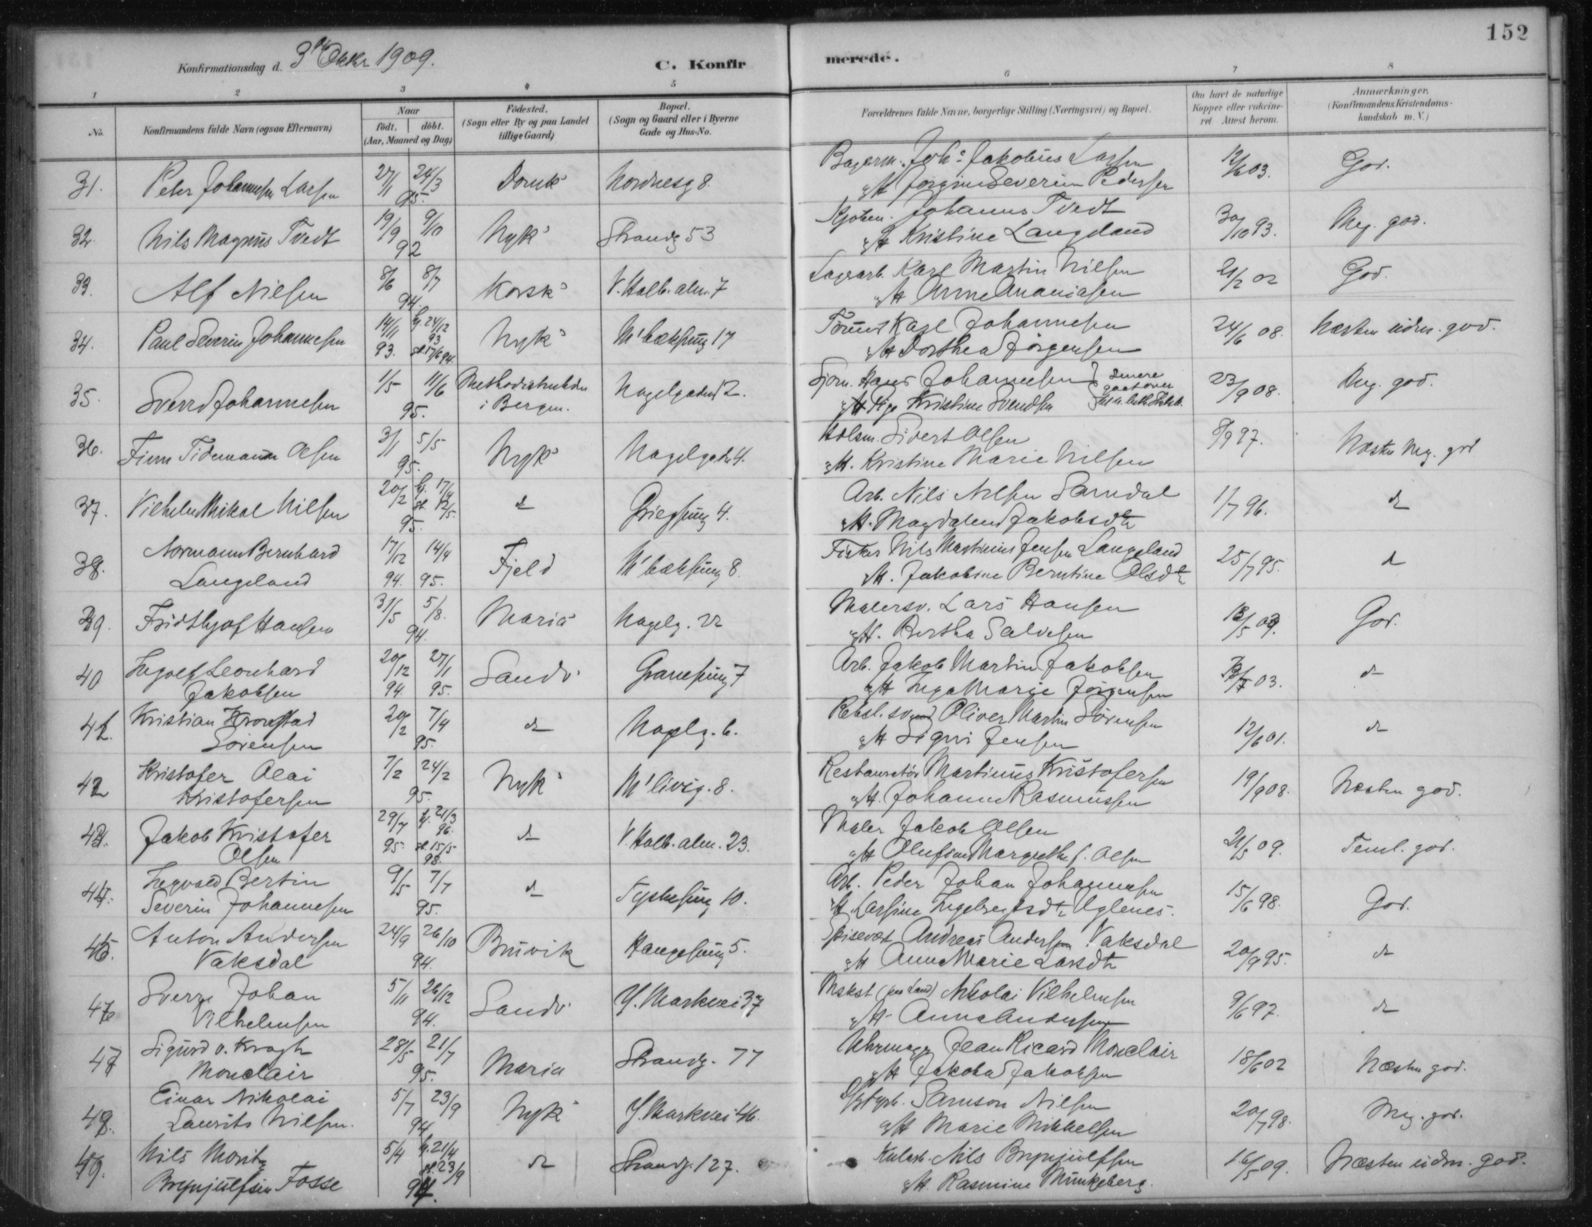 152
Konfirmationsdag d. 3 Oktbr 1909.
C. Konfirmerede.
1 2 3 4 5 6 7 8
No.
Konfirmandens fulde Navn (ogsaa Efternavn)
Naar
født, | døbt.
(Aar, Maaned og Dag)
Fødested.
(Sogn eller By og paa Landet
tillige Gaard)
Bopæl.
(Sogn og Gaard eller i Byerne
Gade og Hus-No.
Forældrenes fulde Navne, borgerlige Stilling (Næringsvei) og Bopæl.
Om havt de naturlige
Kopper eller vaccine-
ret Attest herom.
Anmærkninger.
(Konfirmandens Kristendoms-
kundskab m. V.)
31. Peter Johannesen Larsen 27/1 24/3 95. Domk. Nordnesg 8.
Jakobus Larsen
Severine Pedersen 03. God.
32. Nils Magnus Tvedt 19/9 9/10 92 Nyk. Strandg 53
Johannes Tvedt
Kristine Langeland 30/10 93. Meg. god.
33. Alf Nielsen 8/6 8/7 94. Korsk. V. Halb. alm. 7
Karl Martin Nilsen
Anne Ananiasen 21/2 02 God.
34. Paul Severin Johannesen 14/11 93. 24/12 93 Nyk. 17
Karl Johannesen
Dorthea Jørgensen 24/6 08. Næsten udm. god.
35. Sverre Johannesen 1/5 11/6 95. Methodistkirken
i Bergen. Nagelgaden 2.
Hans Johannesen senere
gaaet over
Kristine Svendsen 23/9 08. Meg. god.
36. Finn Tidemann Olsen 3/1 5/5 95. Nyk. Nagelgade 4.
Sivert Olsen
Kristine Marie Nilsen 8/9 97. Næsten meg. god
37. Vilhelm Mikal Nilsen 20/2 17/4 12/5 95. d Griegsmug 4.
Arb. Nils Nilsen Sørndal
Magdalene Jakobsdtr 1/7 96. d
38. Normann Bernhard
Langeland 17/12 94. 14/4 95. Fjeld 8.
Fisker Nils Martinius Jensen Langeland
Jakobine Berntine Olsdtr 25/7 95. d
39. Fridthjof Hansen 31/5 5/8. 94. Maria Nagelg. 22
Malersv. Lars Hansen
Bertha Salvesen God.
40 Ingolf Leonhard
Jakobsen 20/12 94 27/1 95. Sandv. Granesmug 7
Arb. Jakob Martin Jakobsen
Inga Marie Jørgensen 03. d
41. Kristian Kronstad
Sørensen 20/2 7/4 95. d Nagelg. 6.
Oliver Martin Sørensen
Signi Jensen 12/6 01. d
42 Kristofer Olai
Kristofersen 7/2 24/2 95. Nyk. 8.
Restauratør Martinius Kristofersen
Johanne Rasmussen 19/9 08. Næsten god.
43. Jakob Kristofer
Olsen 29/7 95. 21/3 96. 15/5 98. d V. Halb. alm. 23.
Maler Jakob Olsen
Olufine Margrethe f. Olsen 09. Teml. god.
44. Ingvald Bertin
Severin Johannesen 9/5 7/7 95. d Tyskesmug 10.
Arb. Peder Johan Johannesen
Larsine Ingebrigtsdtr 15/6 98. God.
45. Anton Andersen
Vaksdal 24/9 26/10 94. Bruvik Haugesmug 5.
Andreas Andersen Vaksdal
Anna Marie Larsdtr 20/9 95. d
46 Sverre Johan
Vilhelmsen 5/11 26/12 94. Sandv. Y. Markvei 37
Nikolai Vilhelmsen
Anna Andersen 9/6 97. d
47 Sigurd v. Krogh
Monclair 28/5 21/7 95. Maria Strandg. 77
Uhrmager Jean Ricard Monclair
Jakoba Jakobsen 18/6 02 Næsten god.
48. Einar Nikolai
Laurits Nilsen. 5/7 23/9 94 Nyk. Y. Markvei 46.
Samson Nilsen
Marie Mikkelsen 20/7 98. Meg. god.
49. Nils Moritz
Brynjulfsen Fosse 5/4 21/4 23/9 94. d Strandg. 127.
Nils Brynjulfsen
Rasmine Munkeberg. 16/5 09. Næsten udm. god.